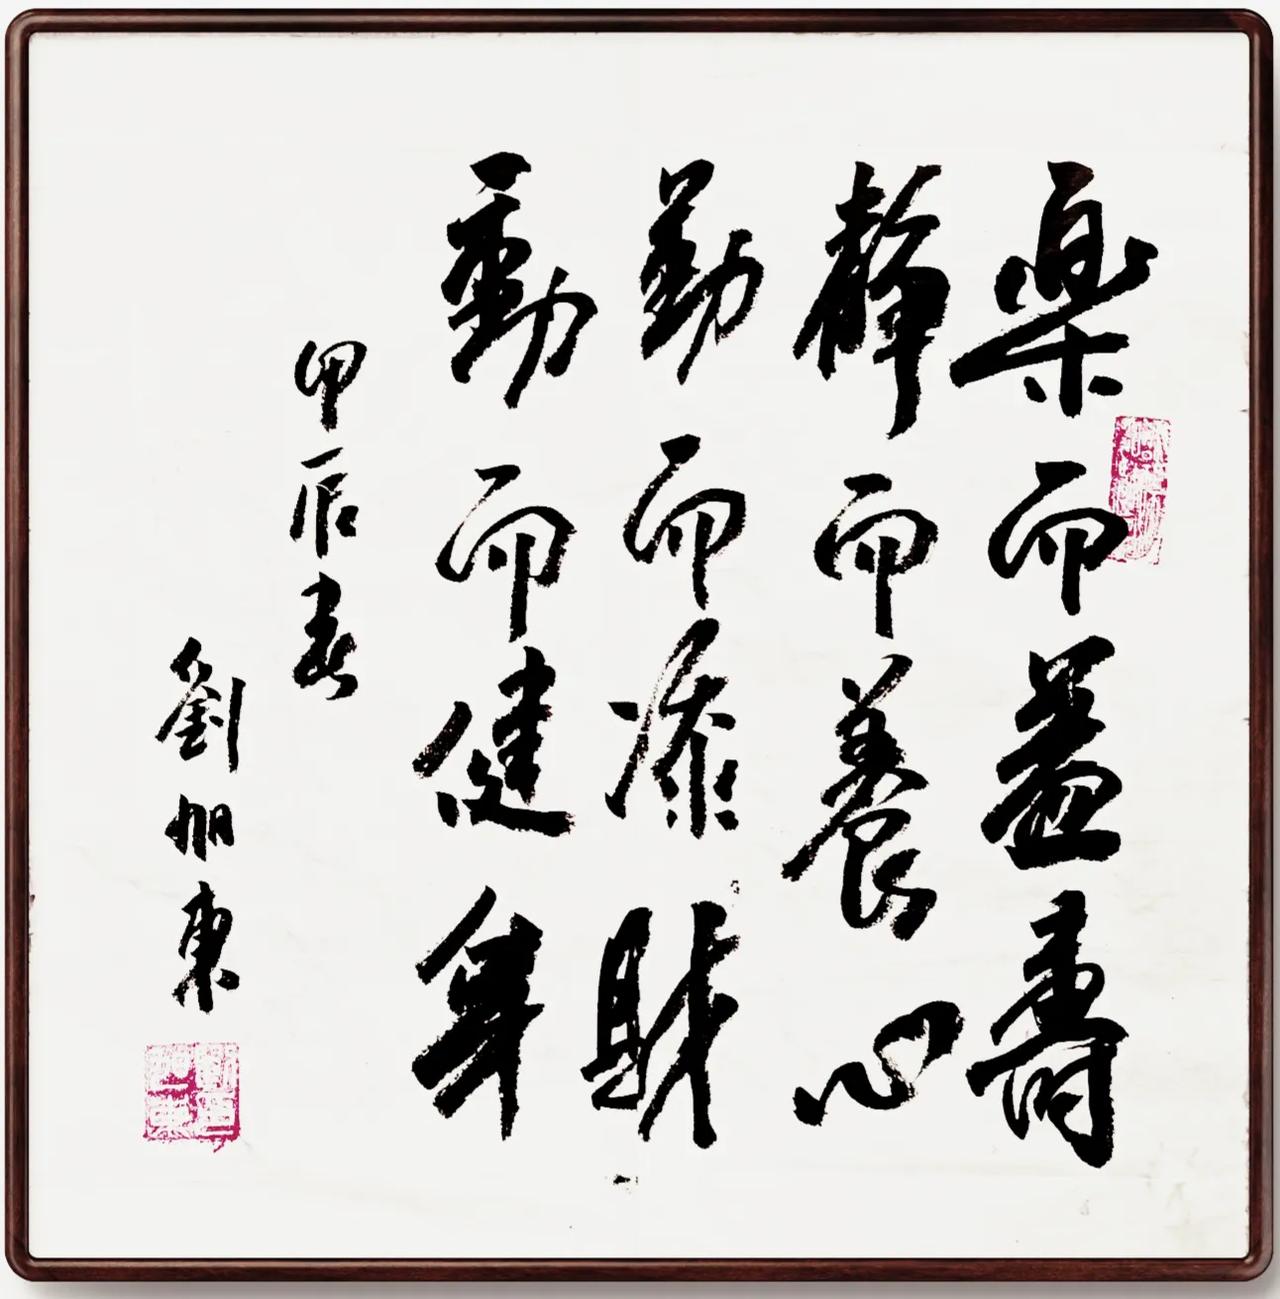 樂而益壽
靜而養心
勤而添財
動而健身
甲辰春
劉旭東